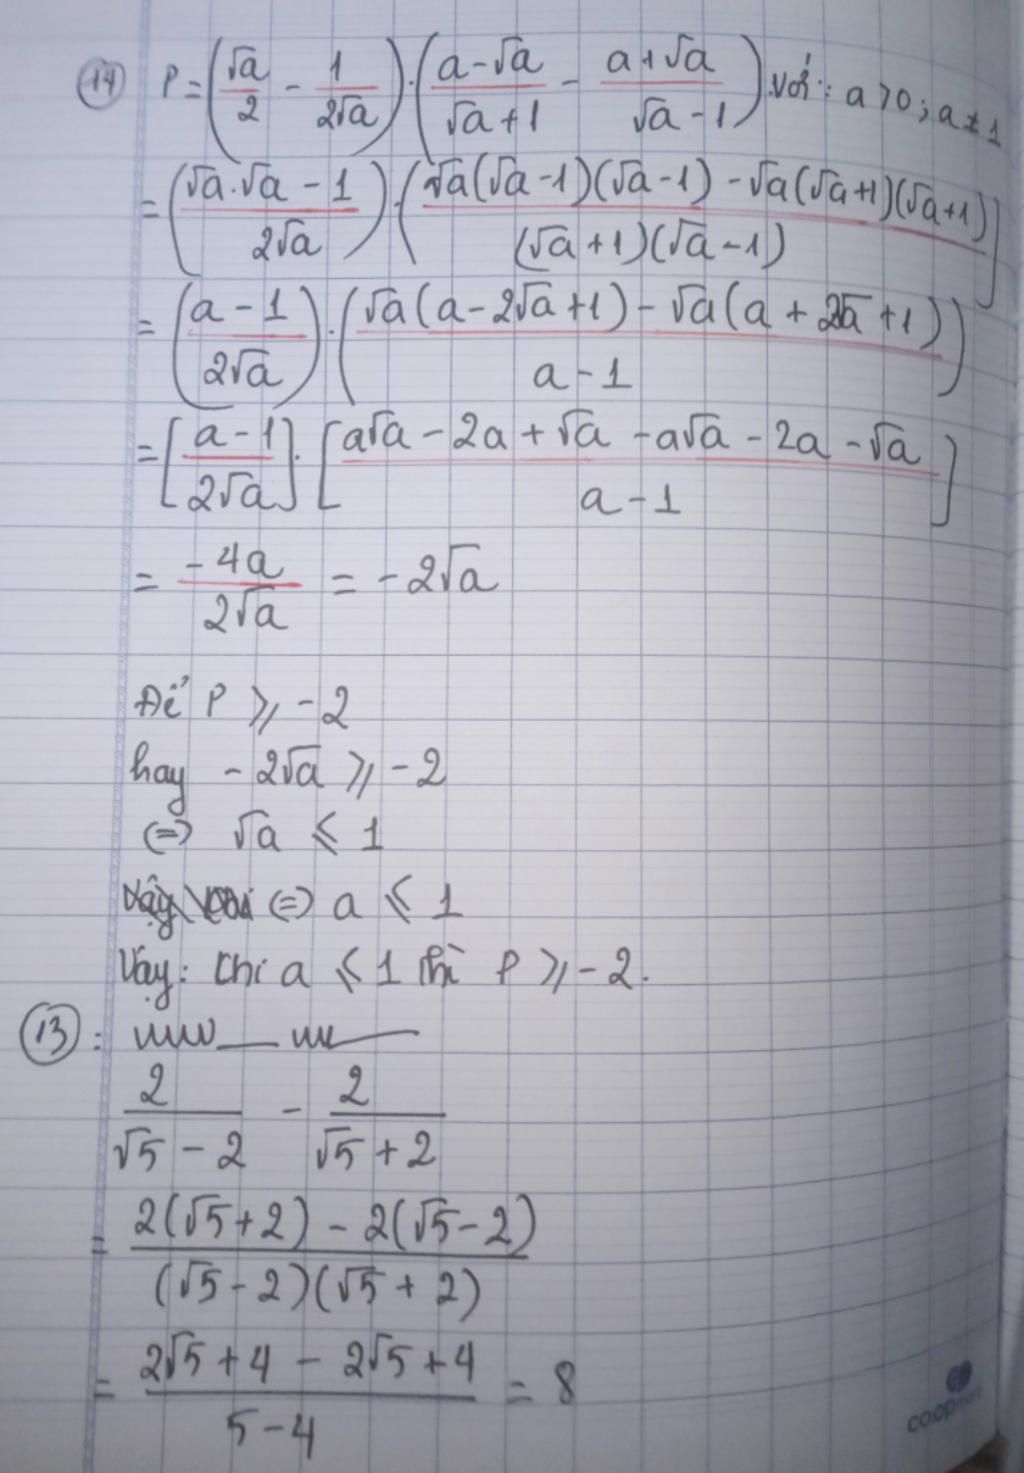 14 P = (√a/2 - 1/2√a) . (a-√a/√a+1 - a+√a/√a-1) với: a>0; a≠1
= (√a.√a - 1/2√a) . (√a(√a-1)(√a-1) - √a(√a+1)(√a+1)/(√a+1)(√a-1)]
= (a-1/2√a) . (√a(a-2√a+1) - √a(a+2√a+1)/a-1)
= [a-1/2√a] . [a√a - 2a + √a - a√a - 2a - √a/a-1]
= -4a/2√a = -2√a
Để P ⩾ -2
hay -2√a ⩾ -2
⇔ √a ⩽ 1
⇔ a ⩽ 1
Vậy: khi a ⩽ 1 thì P ⩾ -2.
13 :
2/√5-2 - 2/√5+2
= 2(√5+2) - 2(√5-2)/(√5-2)(√5+2)
= 2√5+4 - 2√5+4/5-4 = 8